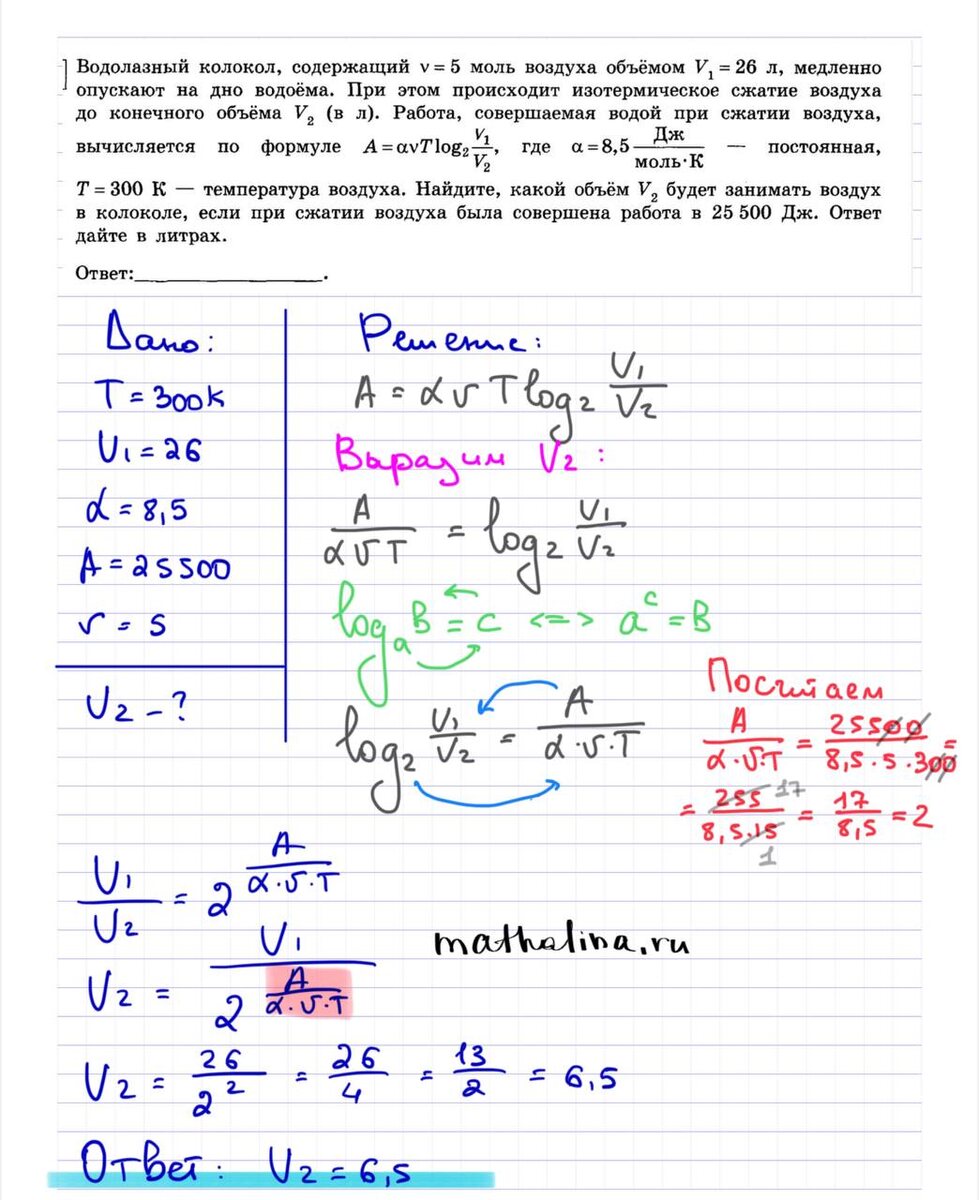 Водолазный колокол, содержащий ν = 5 моль воздуха объёмом V₁ = 26 л, медленно
опускают на дно водоёма. При этом происходит изотермическое сжатие воздуха
до конечного объёма V₂ (в л). Работа, совершаемая водой при сжатии воздуха,
вычисляется по формуле A = ανT log₂ V₁/V₂, где α = 8,5 Дж/моль·К — постоянная,
T = 300 К — температура воздуха. Найдите, какой объём V₂ будет занимать воздух
в колоколе, если при сжатии воздуха была совершена работа в 25 500 Дж. Ответ
дайте в литрах.
Ответ:____________________.
Дано:
T = 300К
υ₁ = 26
α = 8,5
A = 25500
ν = 5
υ₂ - ?
Решение:
A = α ν T log₂ υ₁/υ₂
Выразим υ₂ :
A/(α ν T) = log₂ υ₁/υ₂
logₐ B = c <=> aᶜ = B
log₂ υ₁/υ₂ = A/(α·ν·T)
Посчитаем
A/(α·ν·T) = 25500/(8,5·5·300) =
= 255/(8,5·15) 17 1 = 17/8,5 = 2
υ₁/υ₂ = 2^(A/(α·ν·T))
mathalina.ru
υ₂ = υ₁/2^(A/(α·ν·T))
υ₂ = 26/2² = 26/4 = 13/2 = 6,5
Ответ: υ₂ = 6,5